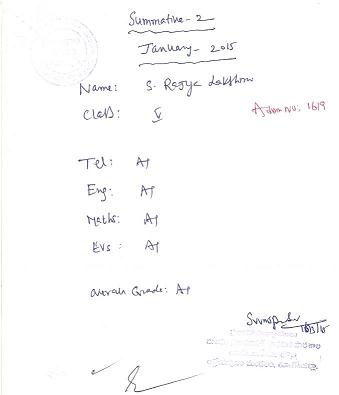 Summative - 2
January - 2015
Name: S. Rajya Lakshmi
Class: V
Admn No: 1619
Tel: A+
Eng: A+
Maths: A+
EVS: A+
Overall Grade: A+